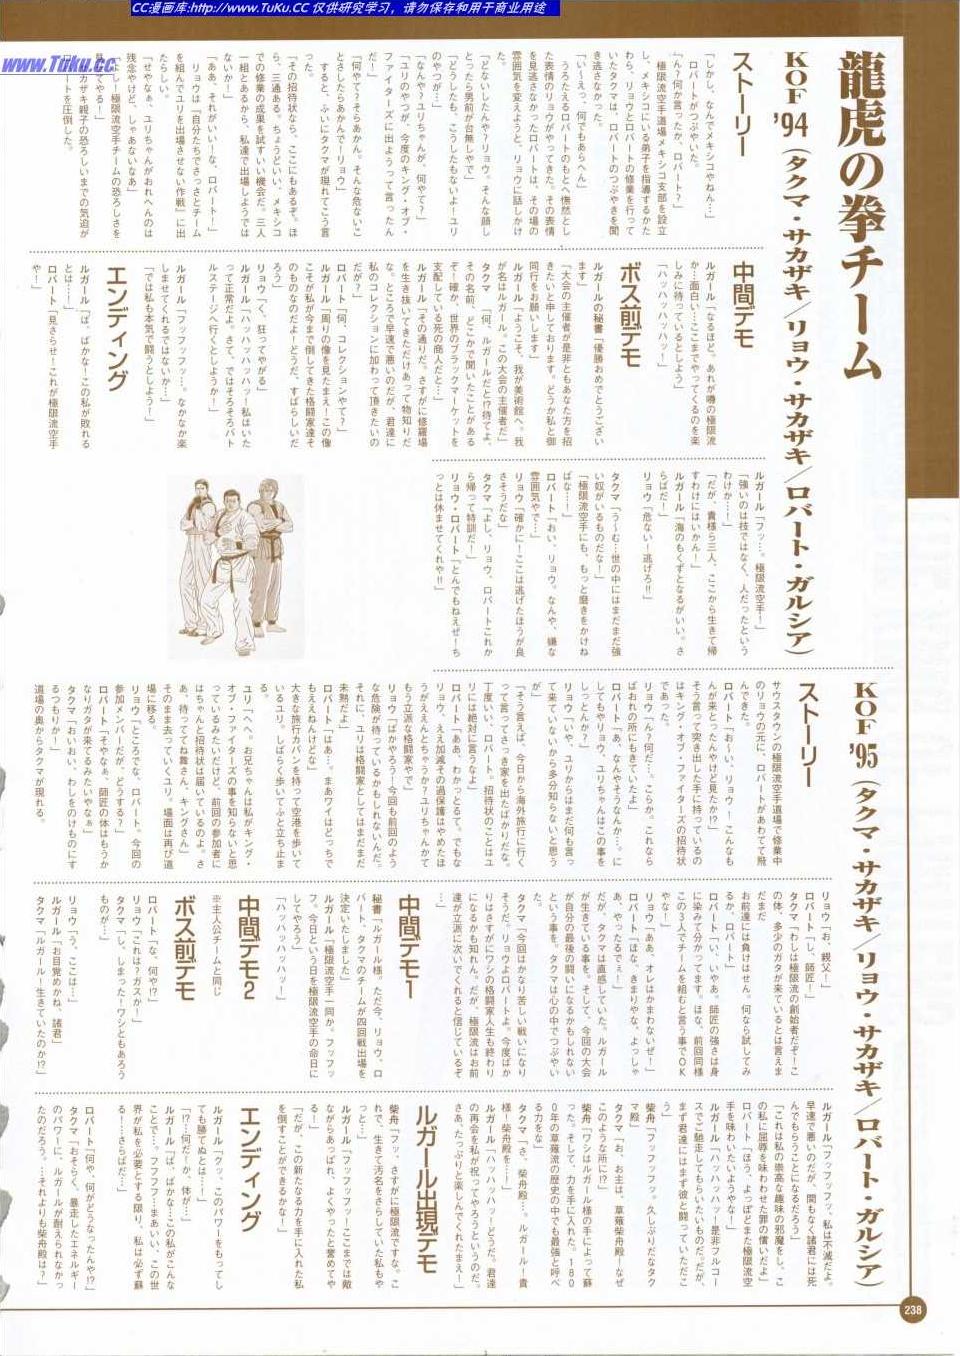 CC漫画库:http://www.TuKu.CC 仅供研究学习，请勿保存和用于商业用途
www.Tuku.cc
龍虎の拳チーム
KOF '94（タクマ・サカザキ／リョウ・サカザキ／ロバート・ガルシア）
ストーリー
「しかし、なんでメキシコやねん…」
ロバートがつぶやいた。
「ん？何か言ったか、ロバート？」
極限流空手道場メキシコ支部を設立
し、メキシコにいる弟子を指導するかた
わら、リョウとロバートの修業を行って
いたタクマは、ロバートのつぶやきを聞
き逃さなかった。
「い～えぇ、何でもあらへん」
うろたえるロバートのもとへ憮然とし
た表情のリョウがやってきた。その表情
を見逃さなかったロバートは、その場の
雰囲気を変えようと、リョウに話しかけ
た。
「どないしたんや？リョウ。そんな顔し
とったら男前が台無しやで」
「どうしたも、こうしたもないよ！ユリ
のやつが…」
「なんや？ユリちゃんが、何やて？」
「ユリのやつが、今度のキング・オブ・
ファイターズに出ようって言ったん
だ！」
「何やて？そらあかん。そんな危ないこ
とさしたらあかんで！リョウ」
すると、ふいにタクマが現れてこう言
った。
「その招待状なら、ここにもあるぞ。ほ
ら、三通ある。ちょうどいい、メキシコ
での修業の成果を試すいい機会だ。三人
一組とあるから、私達で出場しようでは
ないか！」
「ああ！それがいい！な、ロバート！」
リョウは「自分たちでさっさとチーム
を組んでユリを出場させない作戦」に出
たらしい。
「せやなぁ、ユリちゃんがおれへんのは
残念やけど、しゃあないなあ」
「よし！極限流空手チームの恐ろしさを
見せてやる！」
サカザキ親子の恐ろしいまでの気迫が
ロバートを圧倒した。
中間デモ
ルガール「なるほど。あれが噂の極限流
か…面白い…ここまでやってくるのを楽
しみに待っているとしよう」
「ハッハッハッハッ！」
ボス前デモ
ルガールの秘書「優勝おめでとうござい
ます」
「大会の主催者が是非ともあなた方を招
きたいと申しております。どうか私と御
同行をお願いします」
ルガール「ようこそ、我が美術館へ。我
が名はルガール。この大会の主催者だ」
タクマ「何、ルガールだと!?待てよ、
その名前、どこかで聞いたことがある
ぞ！確か、世界のブラックマーケットを
支配している死の商人だと…」
ルガール「その通りだ。さすがに修羅場
を生き抜いてきただけあって物知りだ
な。ところで早速で悪いのだが、君達に
私のコレクションに加わって頂きたいの
だが？」
ロバート「何、コレクションやて？」
ルガール「周りの像を見たまえ！この像
こそが私が今まで倒してきた格闘家達そ
のものなのだよ！どうだ、すばらしいだ
ろう」
リョウ「く、狂ってやがる」
ルガール「ハッハッハッハッ！私はいた
って正常だよ。さて、ではそろそろバト
ルステージへ行くとしようか！」
ルガール「フッフッフッ…。なかなか楽
しませてくれるではないか…」
「では私も本気で闘うとしよう！」
エンディング
ルガール「ば、ばかな！この私が敗れる
とは……！」
ロバート「見さらせ！これが極限流空手
や！」
ルガール「フッ…。極限流空手！」
「強いのは技ではなく、人だったという
わけか…！」
「だが、貴様ら三人、ここから生きて帰
すわけにはいかん！」
ルガール「海のもくずとなるがいい。さ
らばだ！」
リョウ「危ない！逃げろ!!」
タクマ「う～む…世の中にはまだまだ強
い奴がいるものだな！」
「極限流空手にも、もっと磨きをかけね
ばな…！」
ロバート「おい、リョウ。なんや、嫌な
雰囲気やで…」
リョウ「確かに！ここは逃げたほうが良
さそうだな」
タクマ「よし、リョウ、ロバートこれか
ら帰って特訓だ！」
リョウ・ロバート「とんでもねえぜ！ち
ょっとは休ませてくれや!!」
KOF '95（タクマ・サカザキ／リョウ・サカザキ／ロバート・ガルシア）
ストーリー
サウスタウンの極限流空手道場で修業中
のリョウの元に、ロバートがあわてて飛
んできた。
ロバート「お～い、リョウ！こんなも
んが来とったんやけど見たか!?」
そう言って突き出した手に持っているの
はキング・オブ・ファイターズの招待状
であった。
リョウ「ん？何だ…こらか。これなら
ばおれの所にもきていたよ」
ロバート「あ、なんやそうなんか…。に
してもやリョウ、ユリちゃんはこの事を
しっとんか？」
リョウ「いや、ユリからはまだ何も言っ
て来ていないから多分知らないと思う
が」
「そう言えば、今日から海外旅行に行く
って言ってさっき家を出たばかりだな。
丁度いい、ロバート。招待状のことはユ
リには絶対に言うなよ！」
ロバート「ああ、わかっとるて。でもな
リョウ、ええ加減その過保護はやめたほ
うがええんとちゃうか？ユリちゃんかて
もう立派な格闘家やで」
リョウ「ばかやろう！今回も前回のよう
な危険が待っているかもしれないんだ。
それに、ユリは格闘家としてはまだまだ
未熟だよ」
ロバート「はあ…。まあワイはどっちで
もええねんけどな」
大きな旅行カバンを持って空港を歩いて
いるユリ。しばらく歩いてふと立ち止ま
る。
ユリ「へへ。お兄ちゃんは私がキング・
オブ・ファイターズの事を知らないと思
っているみたいだけど、前回の参加者に
はちゃんと招待状は届いているのよ。さ
あ、待っててね舞さん、キングさん」
そのまま去っていくユリ。場面は再び道
場に移る。
リョウ「ところでな、ロバート。今回の
参加メンバーだが、どうする？」
ロバート「そやなぁ。師匠の体はもうか
なりガタが来てるみたいやなぁ」
タクマ「おいおい、わしをのけものにす
るつもりか！」
道場の奥からタクマが現れる。
リョウ「お、親父！」
ロバート「し、師匠！」
タクマ「わしは極限流の創始者だぞ！こ
の体、多少のガタが来ているとは言えま
だまだ
お前達には負けはせん。何なら試してみ
るか、ロバート」
ロバート「い、いやぁ。師匠の強さは身
に染みて分かってます。ほな、前回同様
この３人でチームを組むと言う事でＯＫ
やな！」
リョウ「ああ、オレはかまわないぜ！」
ロバート「ほな、きまりやな、よっしゃ
あ、やったるでぇ！」
だが、タクマは直感していた。ルガール
が生きている事を。そして、今回の大会
が自分の最後の闘いになるかもしれない
という事を、タクマは心の中でつぶやい
た。
タクマ「今回はかなり苦しい戦いになり
そうだ。リョウよロバートよ。今度ばか
りはさすがにワシの格闘家人生も終わり
になるかも知れん。だが、極限流はお前
達が立派に次いでくれると信じているぞ
…」
中間デモ1
秘書「ルガール様。ただ今、リョウ、ロ
バート、タクマのチームが四回戦出場を
決定いたしました」
ルガール「極限流空手一同か。フッフッ
フ。今日という日を極限流空手の命日に
してやろう」
「ハッハッハッハッ！」
中間デモ2
※主人公チームと同じ
ボス前デモ
ロバート「な、何や!?」
リョウ「これは？ガスか！」
タクマ「し、しまった！ワシともあろう
ものが…」
リョウ「う、ここは…」
ルガール「お目覚めかね、諸君」
タクマ「ルガール！生きていたのか!?」
ルガール「フッフッフッ、私は不滅だよ。
早速で悪いのだが、間もなく諸君には死
んでもらうことになるだろう」
「これは私の崇高な趣味の邪魔をし、こ
の私に屈辱を味わわせた罪の償いだよ」
ロバート「ほう、よっぽどまた極限流空
手を味わいたいようやな！」
ルガール「ハッハッハッ！是非フルコー
スでご馳走してもらいたいものだ。だが、
まず君達にはまず彼と闘っていただこ
う」
柴舟「フッフッフッ。久しぶりだなタク
マ殿」
タクマ「お、お主は、草薙柴舟殿！なぜ
このような所に!?」
柴舟「ワシはルガール様の手によって蘇
った。そして、力を手に入れた。180
0年の草薙流の歴史の中でも最強と呼べ
る力をな」
タクマ「さ、柴舟殿…。ル、ルガール！貴
様！柴舟殿を…！」
ルガール「ハッハッハッ！どうだ。君達
の再会を私が祝ってやろうというのだ。
さあ、たっぷりと楽しんでくれたまえ！」
ルガール出現デモ
柴舟「フッ、さすがに極限流ですな。こ
れで、生きて汚名をさらしていた私もや
っと…！」
ルガール「フッフッフッ！ここまでは敵
ながらあっぱれ、よくやったと奮めてや
る！」
「だが、この新たなる力を手に入れた私
を倒すことができるかな！」
エンディング
ルガール「クッ、このパワーをもってし
ても勝てぬとは…！」
「!?…何だ！か、体が…」
ルガール「ば、ばかな…この私がこんな
ことで…。フフフフ…まあいい、この世
界が私を必要とする限り、私は必ず蘇
る！…さらばだ…」
ロバート「何や、何がどうなったんや!?」
タクマ「おそらく、暴走したエネルギー
のパワーに、ルガールが耐えられなかっ
たのだろう。…それよりも柴舟殿は？」
238